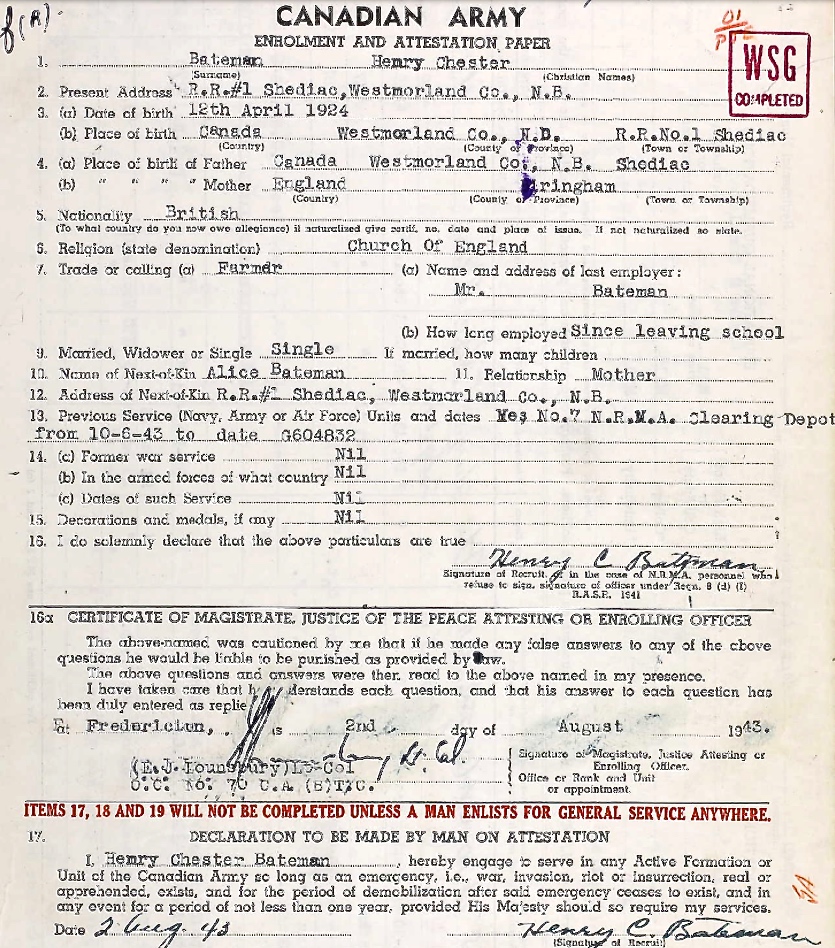 f(A)
CANADIAN ARMY
ENROLMENT AND ATTESTATION PAPER
01
WSG
COMPLETED
1. Bateman Henry Chester
(Surname) (Christian Names)
2. Present Address R.R.#1 Shediac, Westmorland Co., N.B.
3. (a) Date of birth 12th April 1924
(b) Place of birth Canada Westmorland Co., N.B. R.R.No.1 Shediac
(Country) (County or Province) (Town or Township)
4. (a) Place of birth of Father Canada Westmorland Co., N.B. Shediac
(b) " " " " Mother England iringham
(Country) (County or Province) (Town or Township)
5. Nationality British
(To what country do you now owe allegiance) if naturalized give certif. no. date and place of issue. If not naturalized so state.
6. Religion (state denomination) Church Of England
7. Trade or calling (a) Farmdr (a) Name and address of last employer:
Mr. Bateman
(b) How long employed Since leaving school
9. Married, Widower or Single Single If married, how many children
10. Name of Next-of-Kin Alice Bateman 11. Relationship Mother
12. Address of Next-of-Kin R.R.#1 Shediac, Westmorland Co., N.B.
13. Previous Service (Navy, Army or Air Force) Units and dates Yes No.7 N.R.M.A. Clearing Depot
from 10-6-43 to date G604832
14. (c) Former war service Nil
(b) In the armed forces of what country Nil
(c) Dates of such Service Nil
15. Decorations and medals, if any Nil
16. I do solemnly declare that the above particulars are true
Henry C Bateman
Signature of Recruit, or in the case of N.R.M.A. personnel who
refuse to sign, signature of officer under Regn. 8 (d) (I)
R.A.S.R. 1941
16a CERTIFICATE OF MAGISTRATE, JUSTICE OF THE PEACE ATTESTING OR ENROLLING OFFICER
The above-named was cautioned by me that if he made any false answers to any of the above
questions he would be liable to be punished as provided by law.
The above questions and answers were then read to the above named in my presence.
I have taken care that h derstands each question, and that his answer to each question has
been duly entered as replie
at Fredericton, is 2nd day of August 1943.
Lt. Col.
(E.J. Lounsbury) Lt-Col
O.C. No. 70 C.A. (B)T.C.
Signature of Magistrate, Justice Attesting or
Enrolling Officer.
Office or Rank and Unit
or appointment.
ITEMS 17, 18 AND 19 WILL NOT BE COMPLETED UNLESS A MAN ENLISTS FOR GENERAL SERVICE ANYWHERE.
17. DECLARATION TO BE MADE BY MAN ON ATTESTATION
I, Henry Chester Bateman, hereby engage to serve in any Active Formation or
Unit of the Canadian Army so long as an emergency, i.e., war, invasion, riot or insurrection, real or
apprehended, exists, and for the period of demobilization after said emergency ceases to exist, and in
any event for a period of not less than one year, provided His Majesty should so require my services.
Date 2 Aug. 43 Henry C. Bateman
(Signature of Recruit)